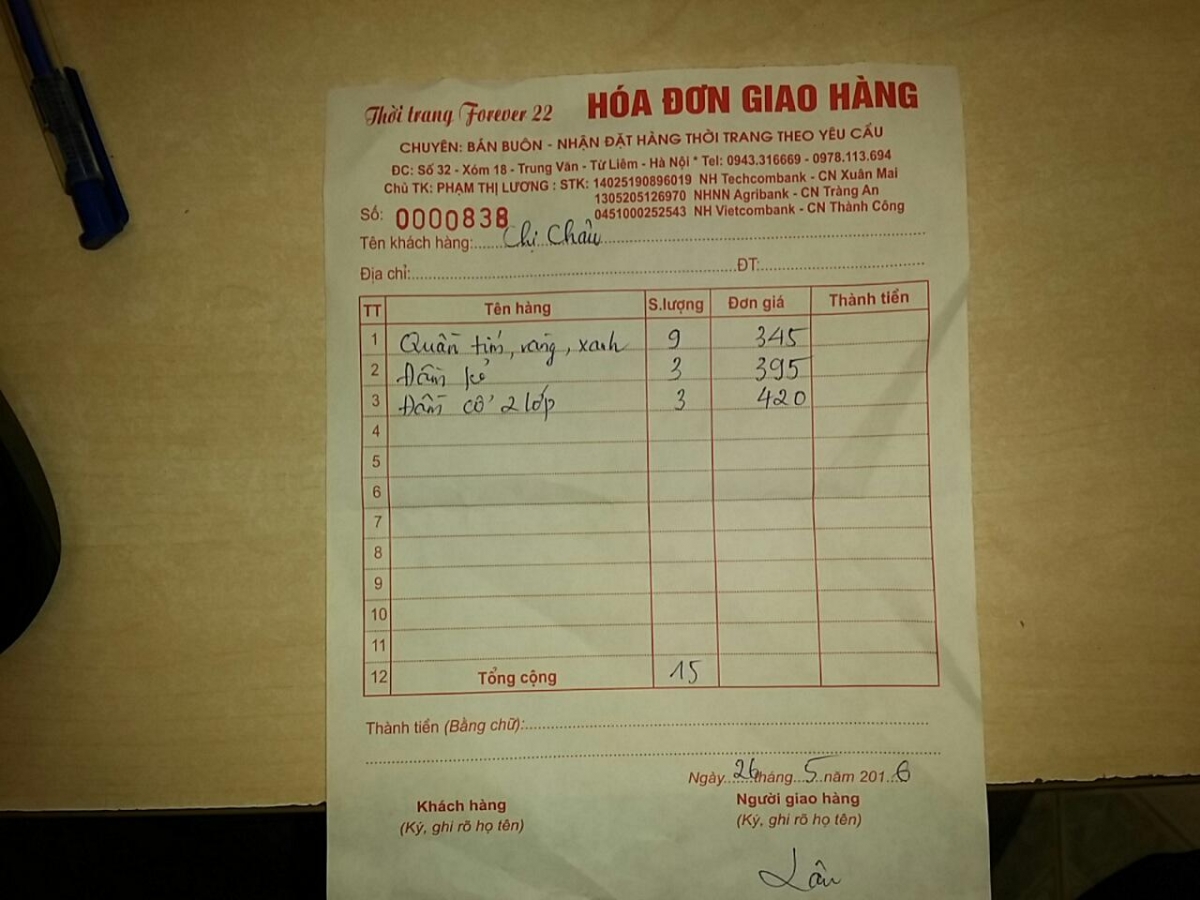 Thời trang Forever 22 HÓA ĐƠN GIAO HÀNG
CHUYÊN: BÁN BUÔN - NHẬN ĐẶT HÀNG THỜI TRANG THEO YÊU CẦU
ĐC: Số 32 - Xóm 18 - Trung Văn - Từ Liêm - Hà Nội * Tel: 0943.316669 - 0978.113.694
Chủ TK: PHẠM THỊ LƯƠNG : STK: 14025190896019 NH Techcombank - CN Xuân Mai
1305205126970 NHNN Agribank - CN Tràng An
0451000252543 NH Vietcombank - CN Thành Công
Số: 0000838
Tên khách hàng: Chị Châu
Địa chỉ: ĐT:
TT Tên hàng S.lượng Đơn giá Thành tiền
1 Quần tím, vàng, xanh 9 345
2 Đầm kẻ 3 395
3 Đầm cổ 2 lớp 3 420
4
5
6
7
8
9
10
11
12 Tổng cộng 15
Thành tiền (Bằng chữ):
Ngày 26 tháng 5 năm 2016
Khách hàng Người giao hàng
(Ký, ghi rõ họ tên) (Ký, ghi rõ họ tên)
Lân